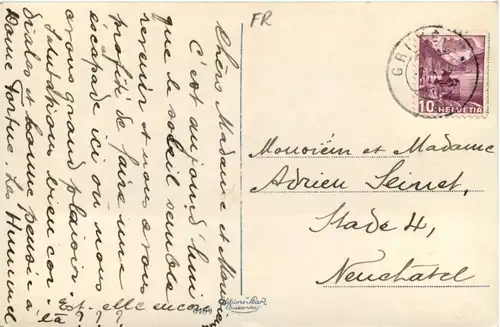 Chère Madame et Monsieur
C'est aujourd'hui
que le soleil semble
revenir et nous avons
profité de faire une
escapade ici où nous
avons grand plaisir.
Salutations bien cor-
diales et bonne pensée à
Dame Tortue. Les Hummel
Est-elle encore
là ? ?
FR
10 HELVETIA
Monsieur et Madame
Adrien Seinet,
Stade 4,
Neuchâtel